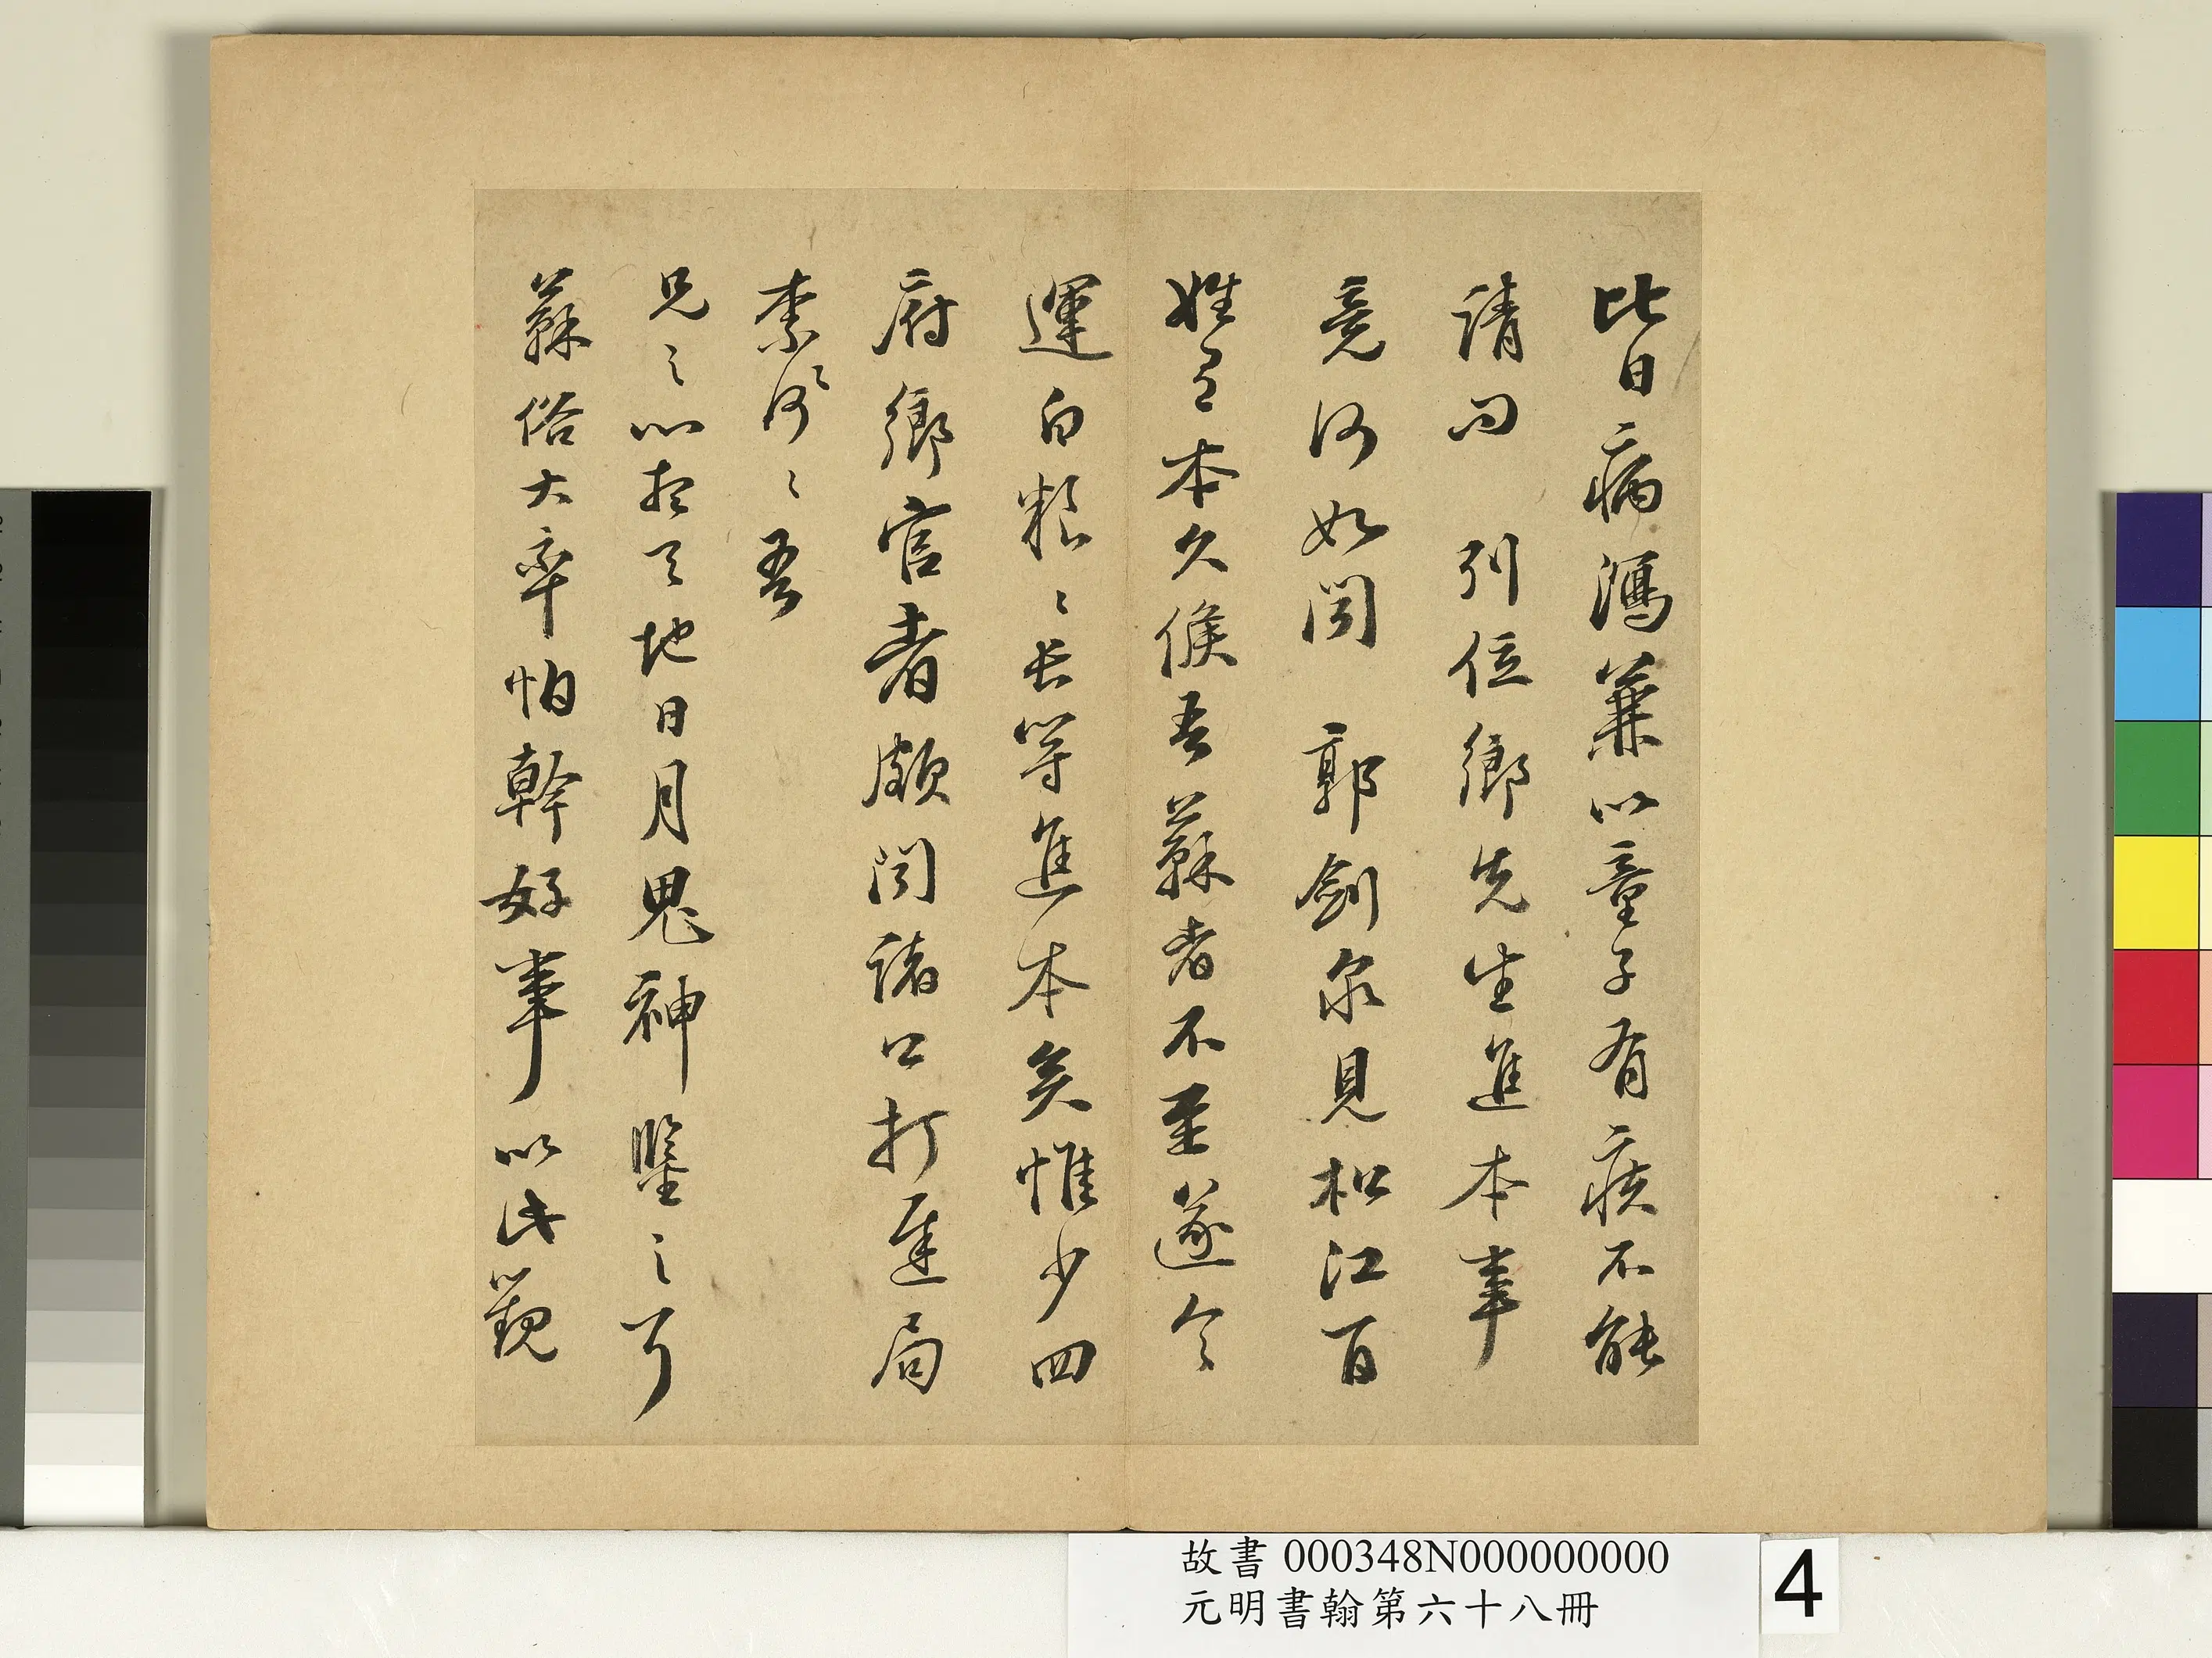 比日病瀉兼以童子有疾不能
請問 列位鄉先生進本事
竟何如聞 郭劍泉見松江百
姓之本久候吾蘇者不至遂令
運白粮〻長等進本矣惟少四
府鄉官者頗聞諸口打遲局
柰何〻〻吾
兄之心於天地日月鬼神鑒之可
蘇俗大率怕幹好事以此觀
故書000348N000000000
元明書翰第六十八冊
4